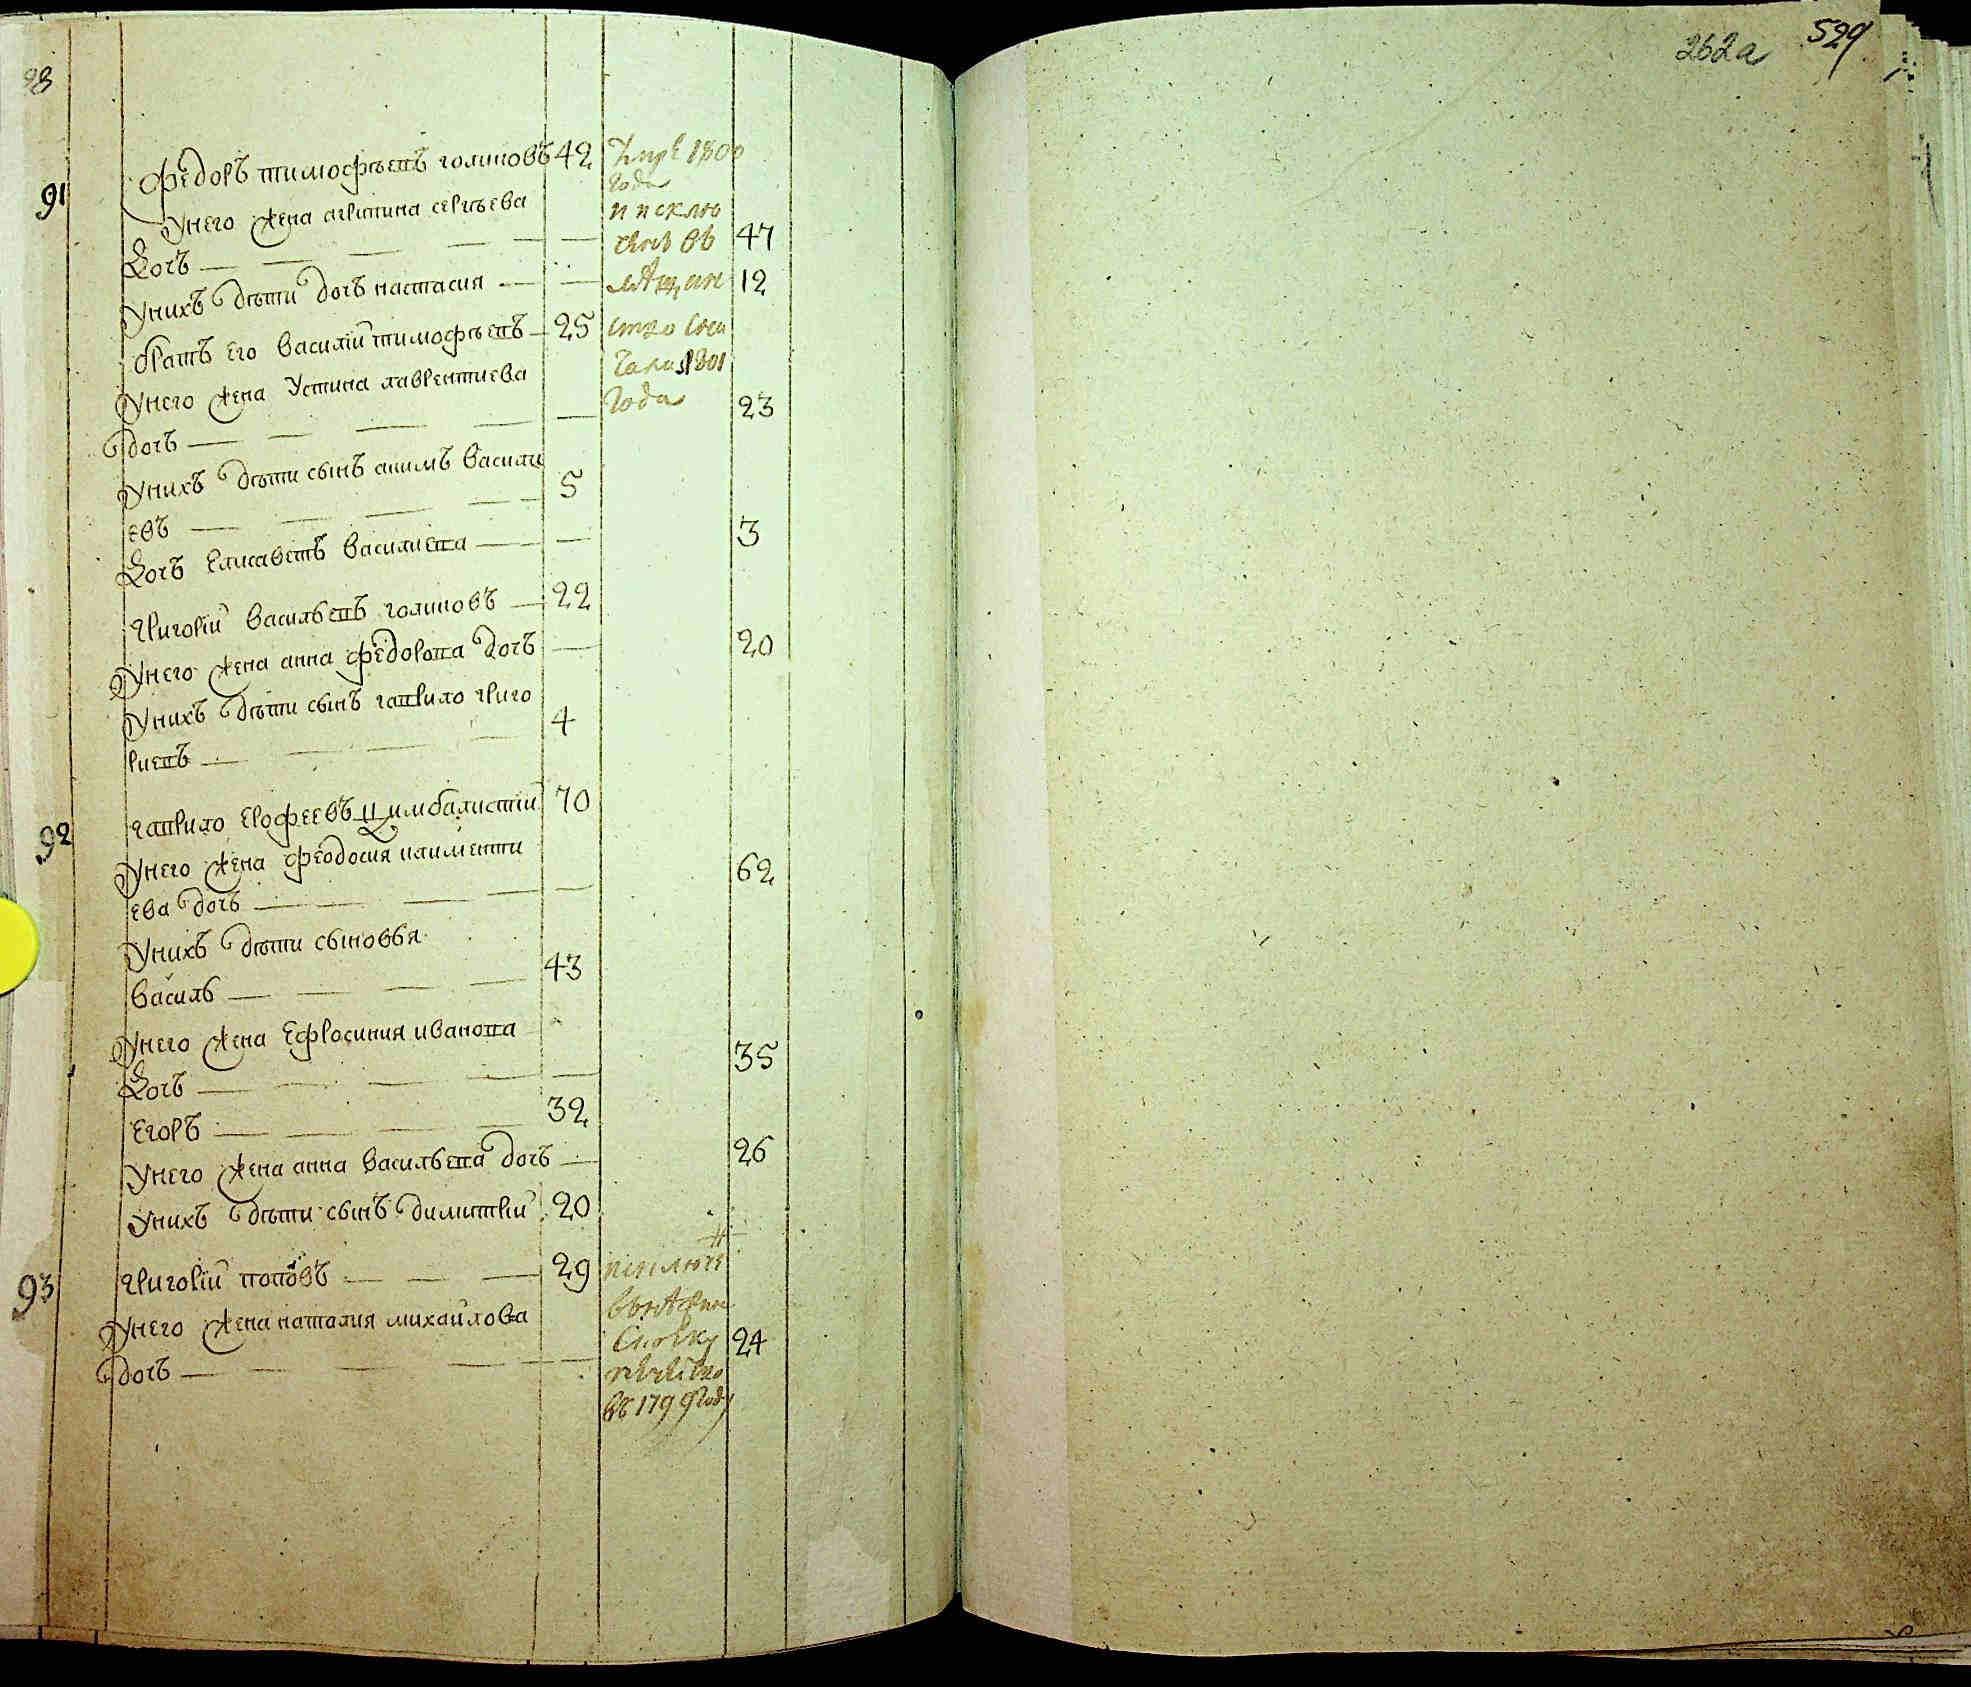 262а 529
98
91 Федоръ тимофѣевъ голиковъ 42
умре 1800
года
Унего жена агрипина сергѣева
и исклю
Дочь — — — — — — 47
ченъ въ
Унихъ дѣти дочь настасия — — 12
мѣщан
братъ Его василій тимофѣевъ — 25
ство
1801
Унего жена Устина лаврентиева
года
дочь — — — — — 23
Унихъ дѣти сынъ акимъ васили
евъ — — — — — 5
Дочь Елисаветъ василиева — — 3
григорій васильевъ голиковъ — 22
Унего жена анна федорова дочь — 20
Унихъ дѣти сынъ гаврило григо
риевъ — — — — 4
92 гаврило Ерофеевъ цимбалистій 70
Унего жена феодосия клименти
ева дочь — — — — — 62
Унихъ дѣти сыновья
василь — — — — 43
Унего жена Ефросиния иванова
Дочь — — — — — 35
Егоръ — — — — 32
Унего жена анна васильева дочь — 26
Унихъ дѣти сынъ димитрій 20
93 григорій поповъ — — — 29
исключе
Унего жена наталия михайлова
дочь — — — — — — 24
въ 1799 году